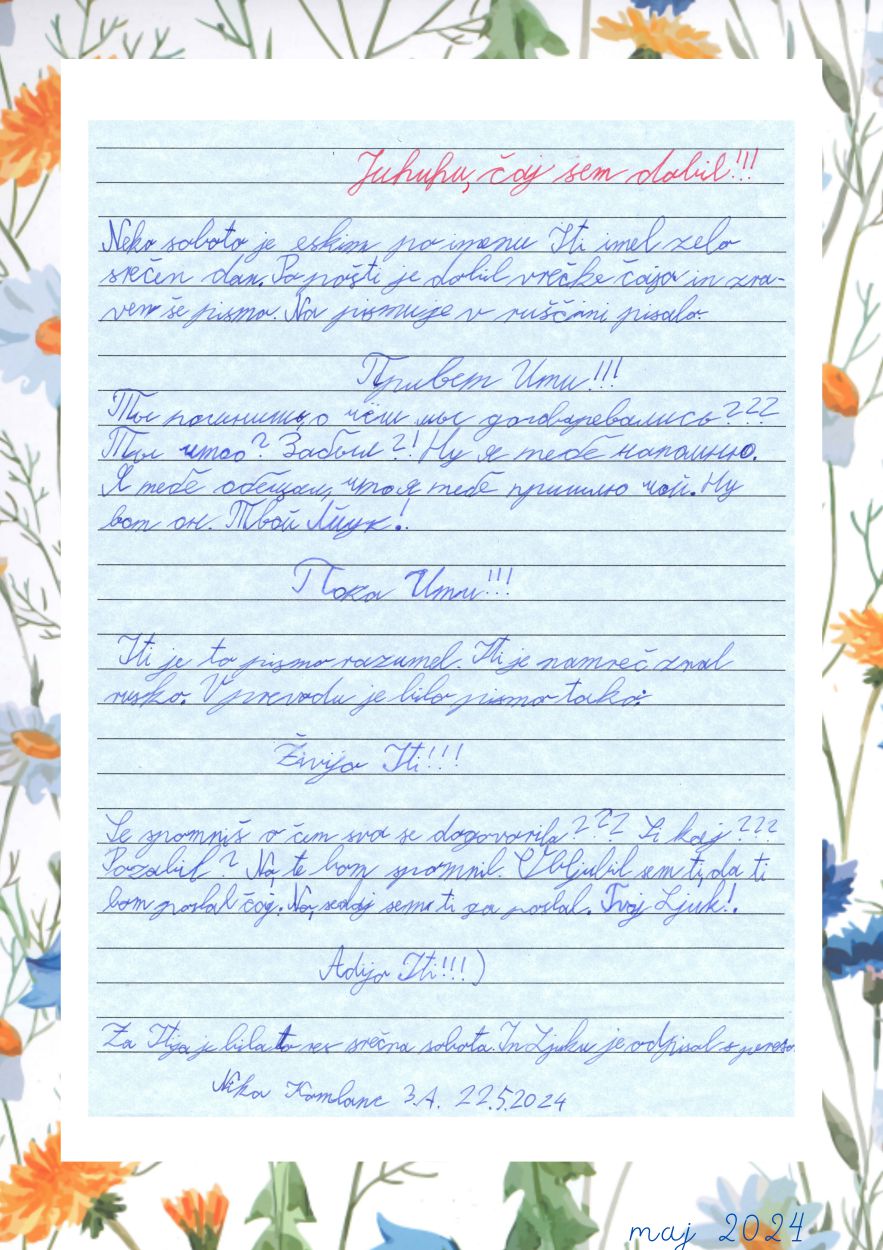 Juhuhu, čaj sem dobil!!!
Neko soboto je eskim po imenu Iti imel zelo
srečen dan. Po pošti je dobil vrečke čaja in zra-
ven še pismo. Na pismu je v ruščini pisalo:
Привет Ити!!!
Ты помнишь, о чём мы договаревались???
Ты што? Забыл?! Ну я тебе напомню.
Я тебе обещал, что я тебе пришлю чай. Ну
вот он. Твой Лйук!
Пока Ити!!!
Iti je to pismo razumel. Iti je namreč znal
rusko. V prevodu je bilo pismo tako:
Živijo Iti!!!
Se spomniš o čem sva se dogovorila??? Si kaj???
Pozabil? No, te bom spomnil. Obljubil sem ti, da ti
bom poslal čaj. No, sedaj sem ti ga poslal. Tvoj Ljuk!
Adijo Iti!!!)
Za Itija je bila to res srečna sobota. In Ljuku je odpisal s peresom.
Nika Komlanc 3.A. 22.5.2024
maj 2024